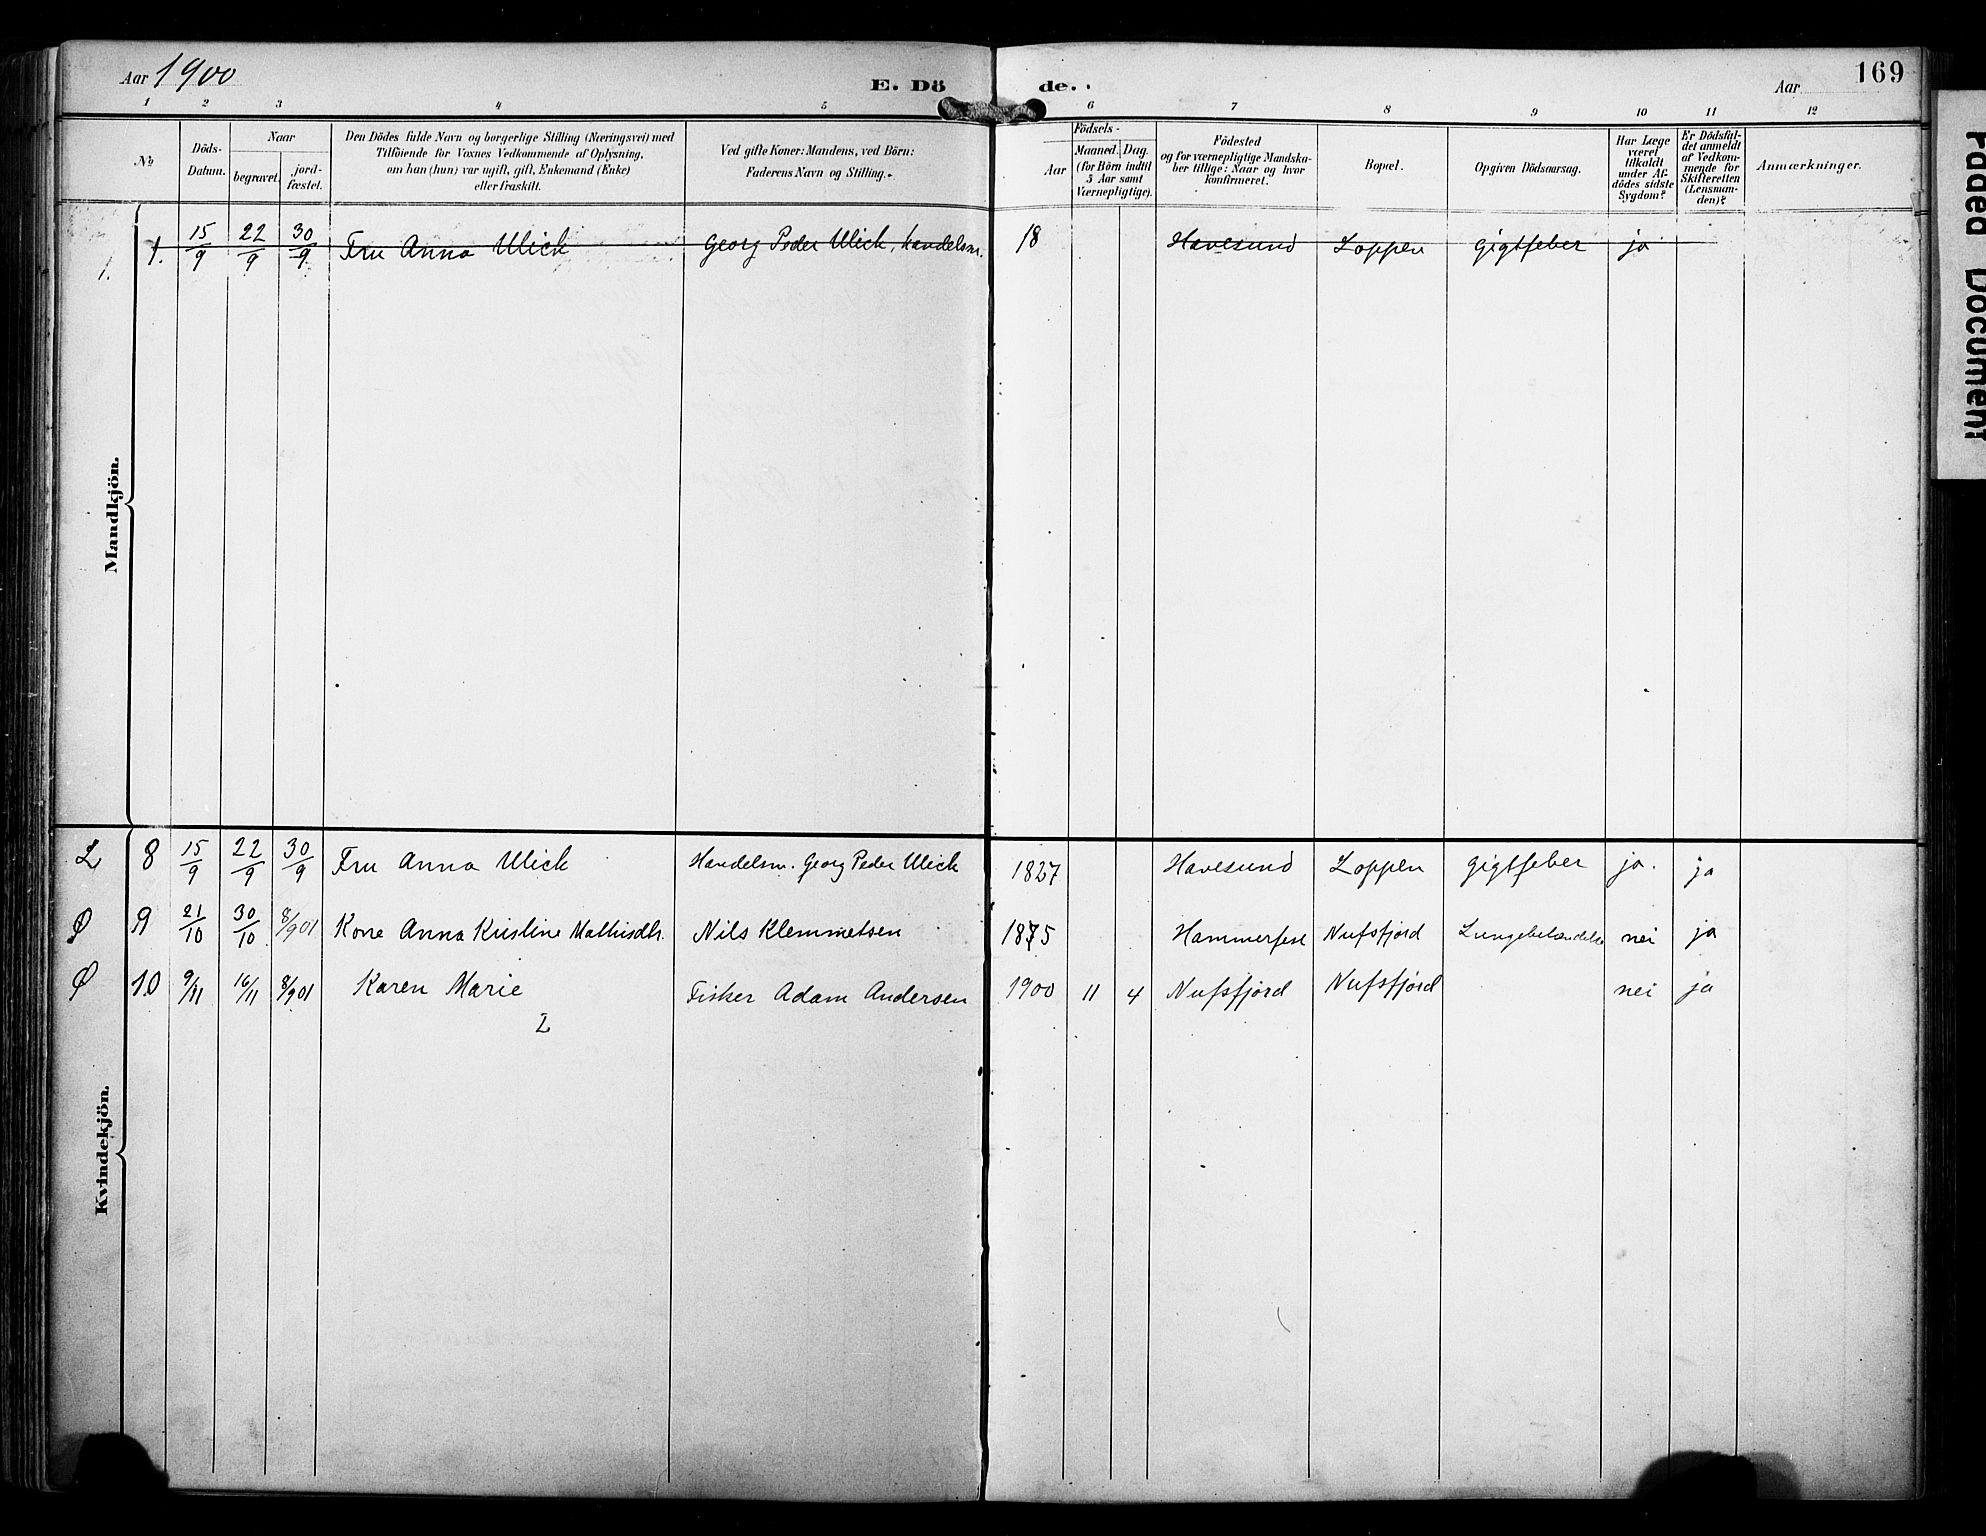 Aar 1900
E. Döde.
Aar
169
1 2 3 4 5 6 7 8 9 10 11 12
No
Döds-Datum.
Naar
begravet.
jord-fæstet.
Den Dödes fulde Navn og borgerlige Stilling (Næringsvei) med
Tilföiende for Voxnes Vedkommende af Oplysning,
om han (hun) var ugift, gift, Enkemand (Enke)
eller fraskilt.
Ved gifte Koner: Mandens, ved Börn:
Faderens Navn og Stilling.
Födsels-
Aar
Maaned. Dag.
(for Börn indtil
5 Aar samt
Værnepligtige).
Födested
og for værnepligtige Mandska-
ber tillige: Naar og hvor
konfirmeret.
Bopæl.
Opgiven Dödsaarsag.
Har Læge
været
tilkaldt
under Af-
dödes sidste
Sygdom?
Er Dödsfal-
det anmeldt
af Vedkom-
mende for
Skifteretten
(Lensman-
den)?
Anmærkninger.
1. 1. 15/9 22/9 30/9 Fru Anna Ulich Georg Peder Ulich, handelsm. 18 Havesund Loppen Gigtfeber ja
Mandkjön.
L 8 15/9 22/9 30/9 Fru Anna Ulich Handelsm. Georg Peder Ulich 1827 Havesund Loppen Gigtfeber ja. ja
Ø 9 21/10 30/10 8/9 01 Kone Anna Kristine Mathisdtr. Nils Klemmetsen 1875 Hammerfest Nufsfjord nei ja
Ø 10 9/11 16/11 8/9 01 Karen Marie Fisker Adam Andersen 1900 11 4 Nufsfjord Nufsfjord nei ja
Kvindekjön.
Faded Document